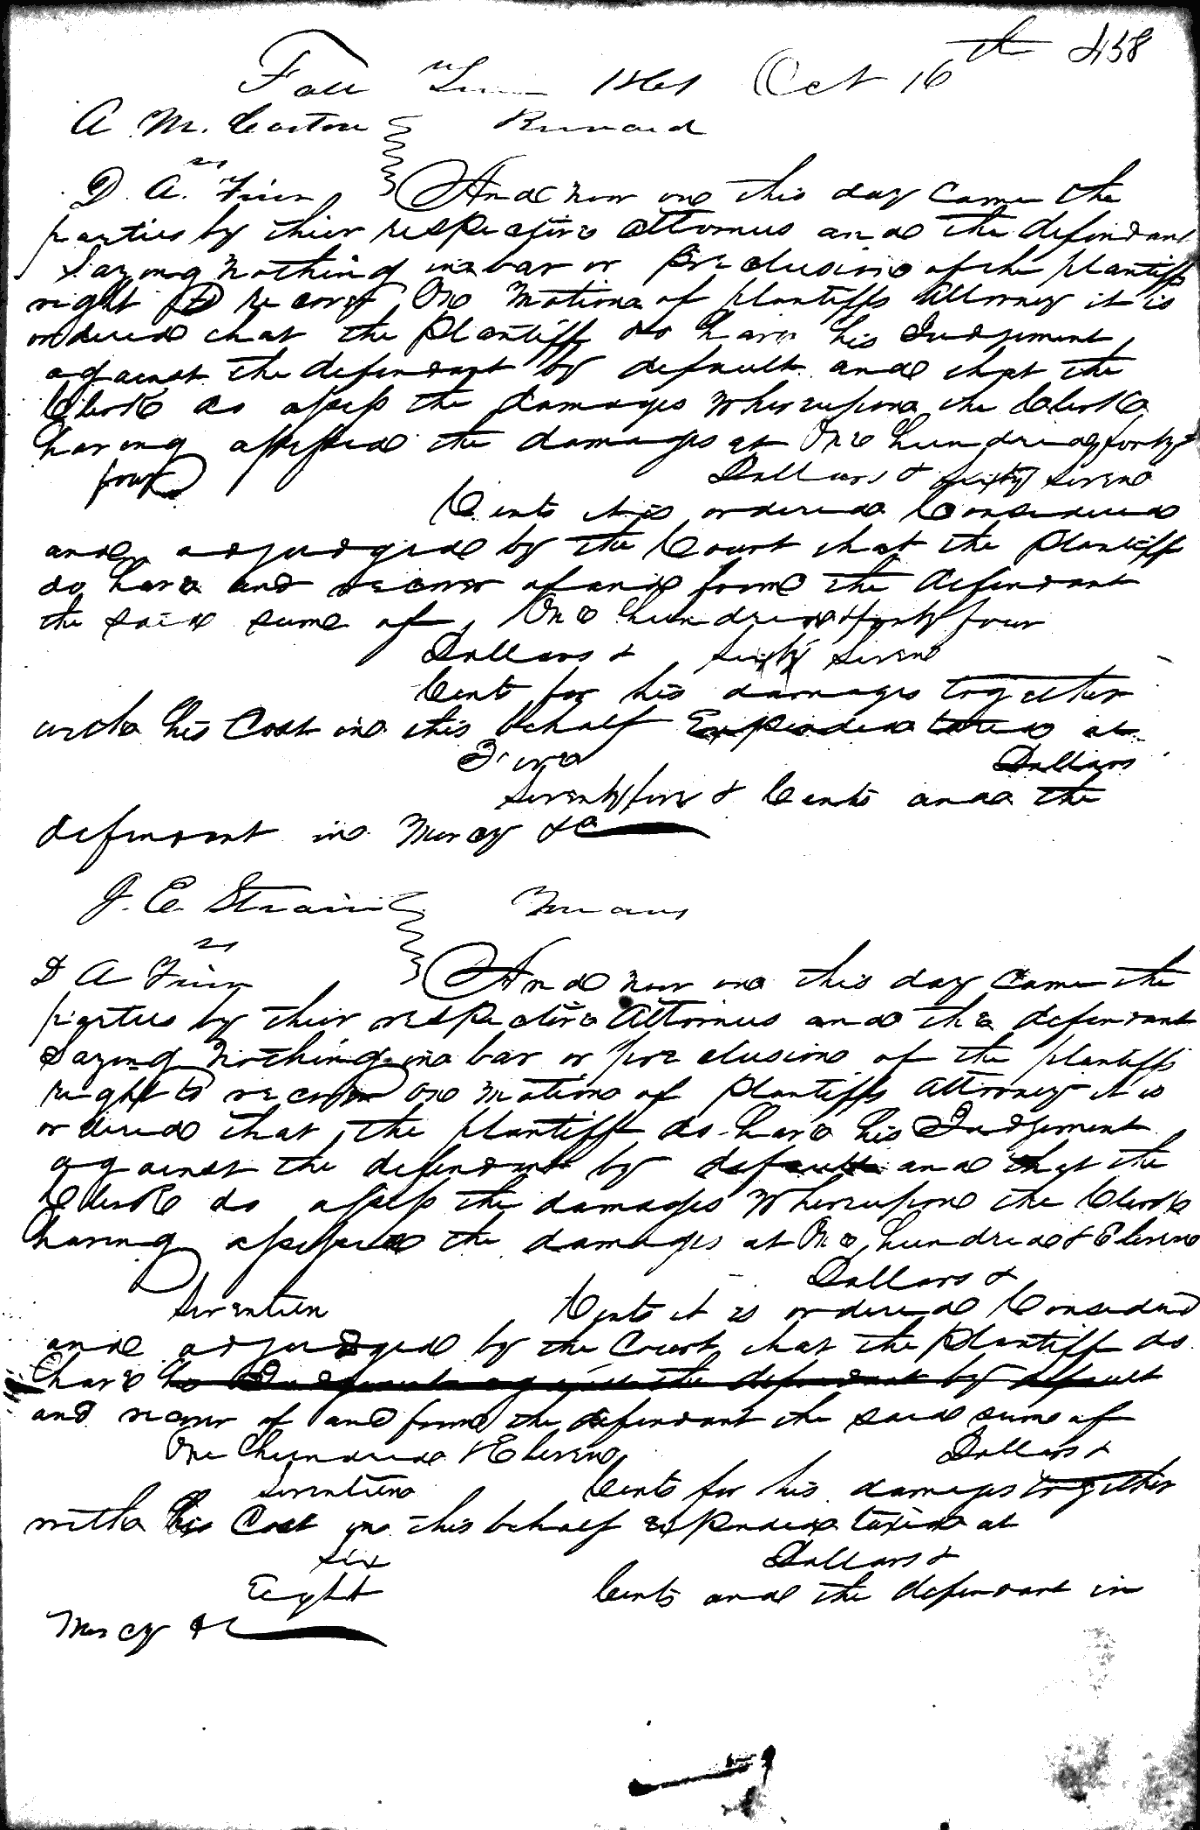 458
Fall Term 1861 Oct 16th
A. M. Carton
vs
D. A. Finn And now on this day came the
parties by their respective attornies and the defendant
saying nothing in bar or preclusion of the plantiffs
right to recover On Motion of plantiffs Attorney it is
ordered that the plantiff do have his Judgement
against the defendant by default and that the
Clerk do assess the damages Whereupon the Clerk
having assessed the damages at One hundred & forty
four Dollars & Sixty Seven
Cents it is ordered Considered
and adjudged by the Court that the plantiff
do have and recover of and from the defendant
the said sume of One hundred & forty four
Dollars & Sixty Seven
Cents for his damages together
with his Cost in this behalf Expended taxed at
Five Dollars
Seventy five & Cents and the
defendant in Mercy &c
J. E. Strain
vs
D A Finn And now on this day came the
parties by their respective Attornies and the defendant
saying nothing in bar or preclusion of the plantiffs
right to recover On Motion of plantiffs attorney it is
ordered that the plantiff do have his Judgement
against the defendant by default and that the
Clerk do assess the damages Whereupon the Clerk
having assessed the damages at One hundred & Eleven
Dollars &
Seventeen Cents it is ordered Considered
and adjudged by the Court that the plantiff do
have his Judgement against the defendant by default
and recover of and from the defendant the said sume of
One hundred & Eleven Dollars &
Seventeen Cents for his damages together
with his Cost in this behalf expended taxed at
Six Dollars &
Eight Cents and the defendant in
Mercy &c